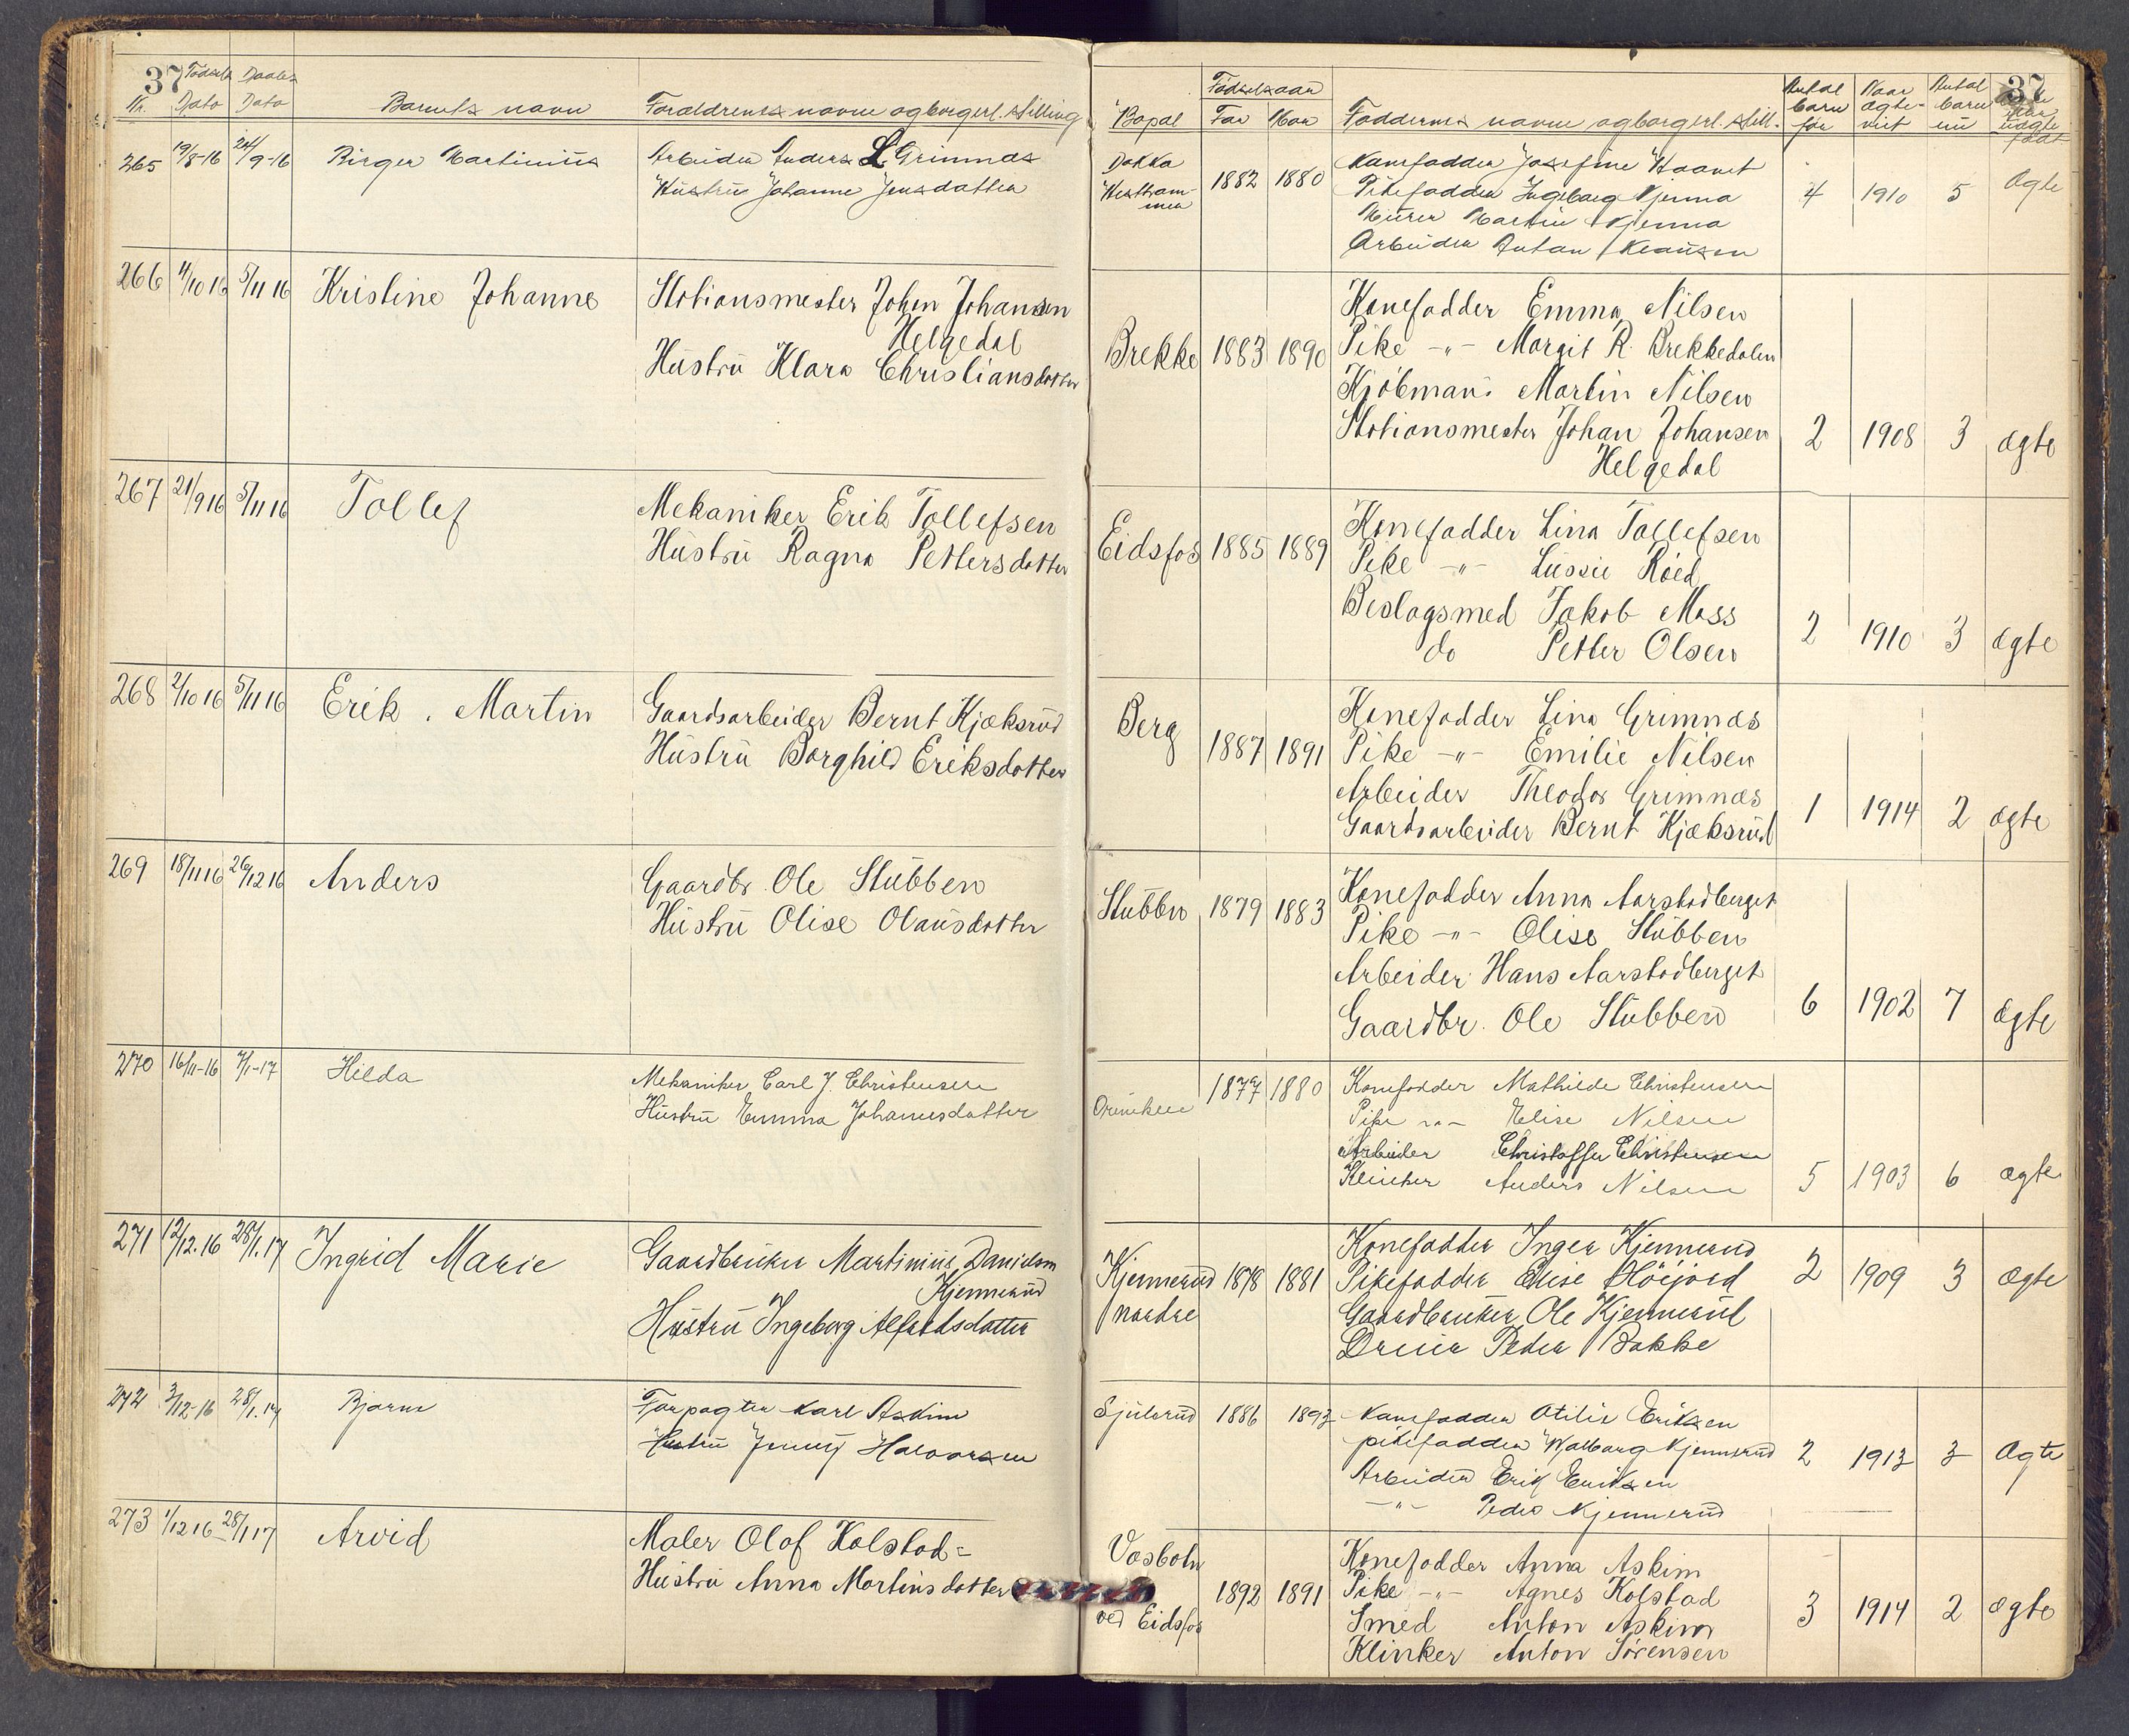 37 Fødsels Daabs-
Nr. Dato Dato Barnets navn Forældrenes navne og borgerl. stilling
265 19/8-16 24/9-16 Birger Martinius Arbeider Anders L. Grimnæs
Hustru Johanne Jensdatter
266 4/10 16 5/11 16 Kristine Johanne Stationsmester Johan Johansen
Helgedal
Hustru Klara Christiansdatter
267 21/9 16 5/11 16 Tollef Mekaniker Erik Tollefsen
Hustru Ragna Pettersdatter
268 2/10 16 5/11 16 Erik Martin Gaardsarbeider Bernt Kjæksrud
Hustru Borghild Eriksdatter
269 18/11 16 26/12 16 Anders Gaardbr. Ole Stubben
Hustru Olise Olausdatter
270 16/11-16 7/1-17 Hilda Mekaniker Carl J. Christensen
Hustru Emma Johannesdatter
271 12/12.16 28/1.17 Ingrid Marie Gaardbruker Martinius Danielsen
Kjennerud
Hustru Ingeborg Alfredsdatter
272 3/12-16 28/1.17 Bjarne Forpagter Karl Askim
Hustru Jenny Halvorsen
273 1/12 16 28/1 17 Arvid Maler Olof Kolstad =
Hustru Anna Martinsdatter
Fødselsaar Antal Naar Antal 37
Bopæl Far Mor Faddernes navne og borgerl. still. barn før ægte-viet barn nu ægte uægte født
Dokka Konefadder Josefine Haavet
Vestham- 1882 1880 Pikefadder Ingeborg Kjenna 4 1910 5 Ægte
meren Murer Martin Kjenna
Arbeider Anton Klausen
Konefadder Emma Nilsen
Brekke 1883 1890 Pike -"- Margit R. Brekkedalen
Kjøbmand Martin Nilsen
Stationsmester Johan Johansen 2 1908 3 ægte
Helgedal
Konefadder Lina Tollefsen
Eidsfos 1885 1889 Pike -"- Lussie Röed
Beslagsmed Jakob Moss
do Petter Olsen 2 1910 3 ægte
Konefadder Lina Grimnæs
Berg 1887 1891 Pike -"- Emilie Nilsen
Arbeider Theodor Grimnæs
Gaardsarbeider Bernt Kjæksrud 1 1914 2 ægte
Konefadder Anna Aarstadberget
Stubben 1879 1883 Pike -"- Olise Stubben
Arbeider Hans Aarstadberget
Gaardbr. Ole Stubben 6 1902 7 ægte
1880 Konefadder Mathilde Christensen
Pike -"- Elise Nilsen
Arbeider Christoffer Christensen
Klinker Anders Nilsen 5 1903 6 ægte
Konefadder Inger Kjennerud
Kjennerud 1878 1881 Pikefadder Elise Höijord 2 1909 3 ægte
nordre Gaardbruker Ole Kjennerud
Dreier Peder Bakke
Sjulsrud 1886 1893 Konefadder Otilie Eriksen
pikefadder Walborg Kjennerud 2 1913 3 Ægte
Arbeider Erik Eriksen
-"- Peder Kjennerud
Vasbotn Konefadder Anna Askim
1892 1891 Pike -"- Agnes Kolstad
ved Eidsfos Smed Anton Askim 3 1914 2 ægte
Klinker Anton Sørensen